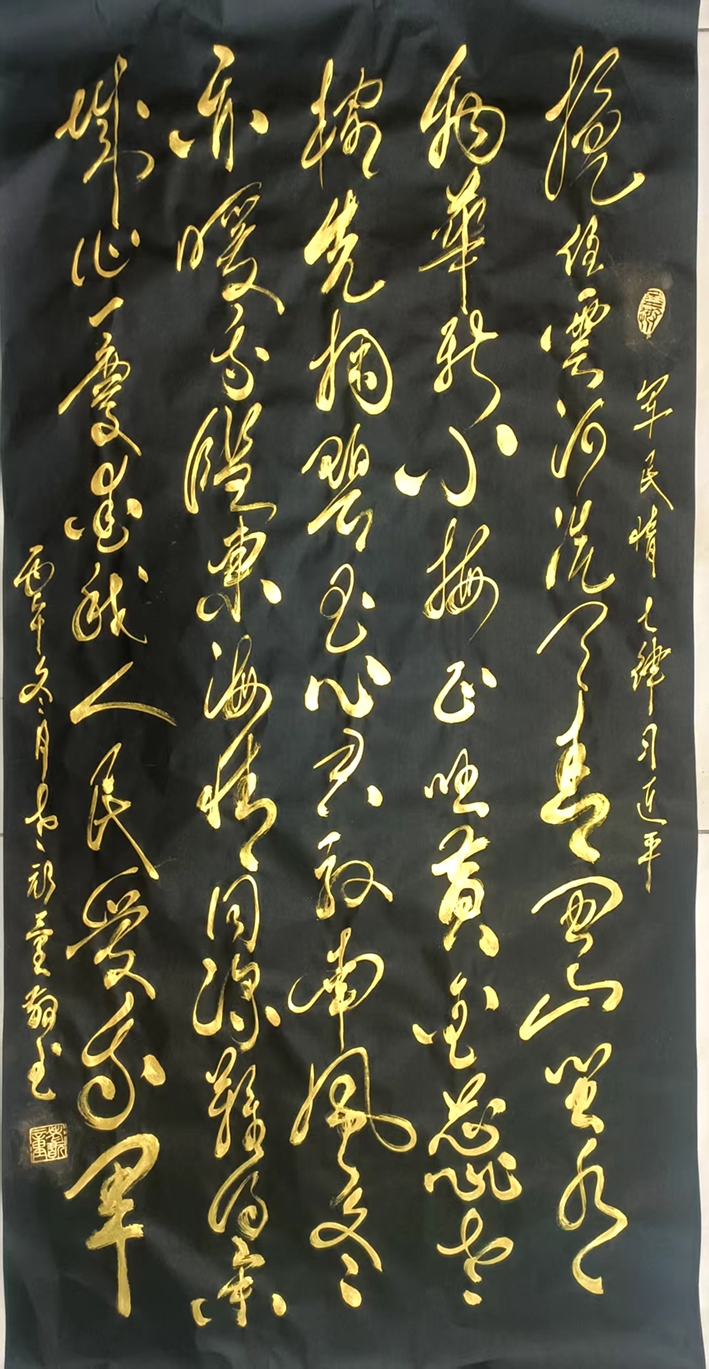 军民情七律习近平
挽住雲河洗天青闽山闽水
物華新小梅正吐黄金蕊老
榕先掬碧玉心君驭南風冬
亦暖我臨東海情同深難得举
城作一慶爱我人民爱我軍
丙午冬月 书